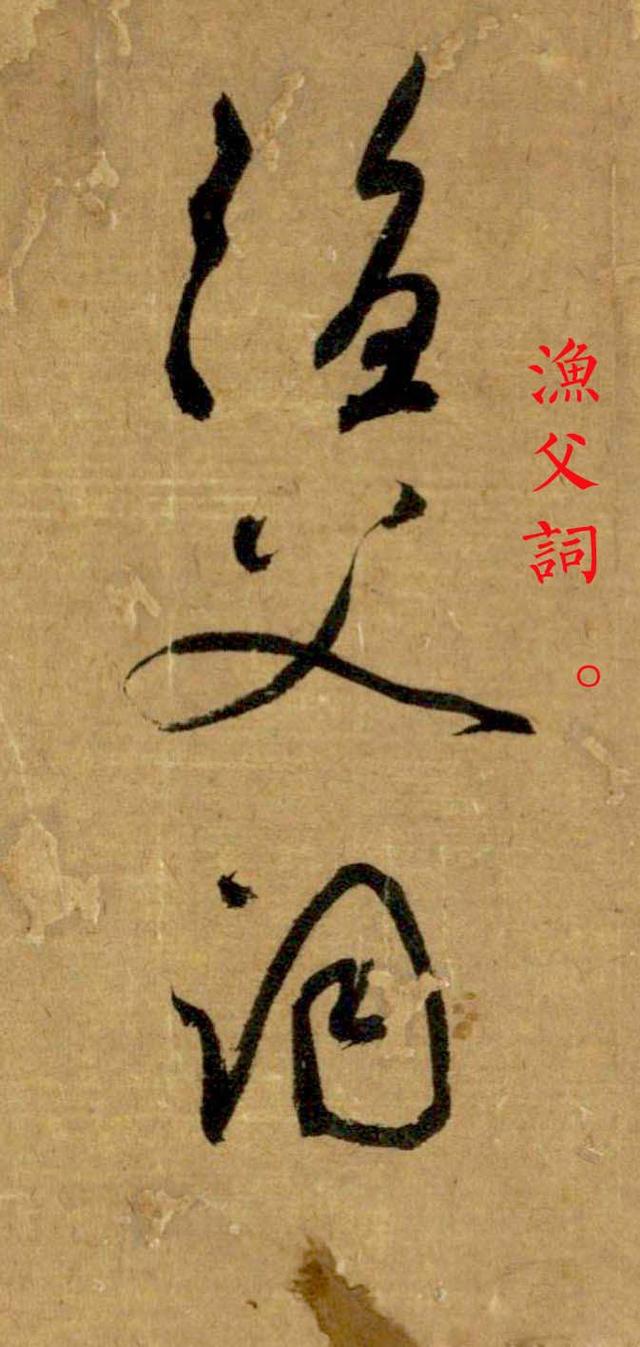 漁父詞。
漁父詞